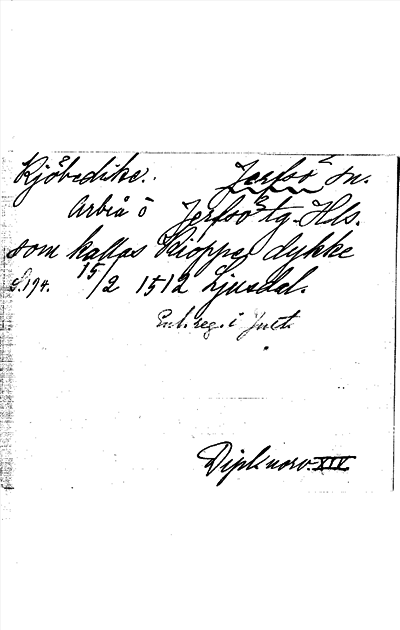 Kjöbedike. Jerfsö sn.
Arbiå ö Jerfsö tg. Hls.
som kallas Kioppe dykke
S.194. 15/2 1512 Ljusdal.
Enl. reg. i
Dipl. norv. XIV